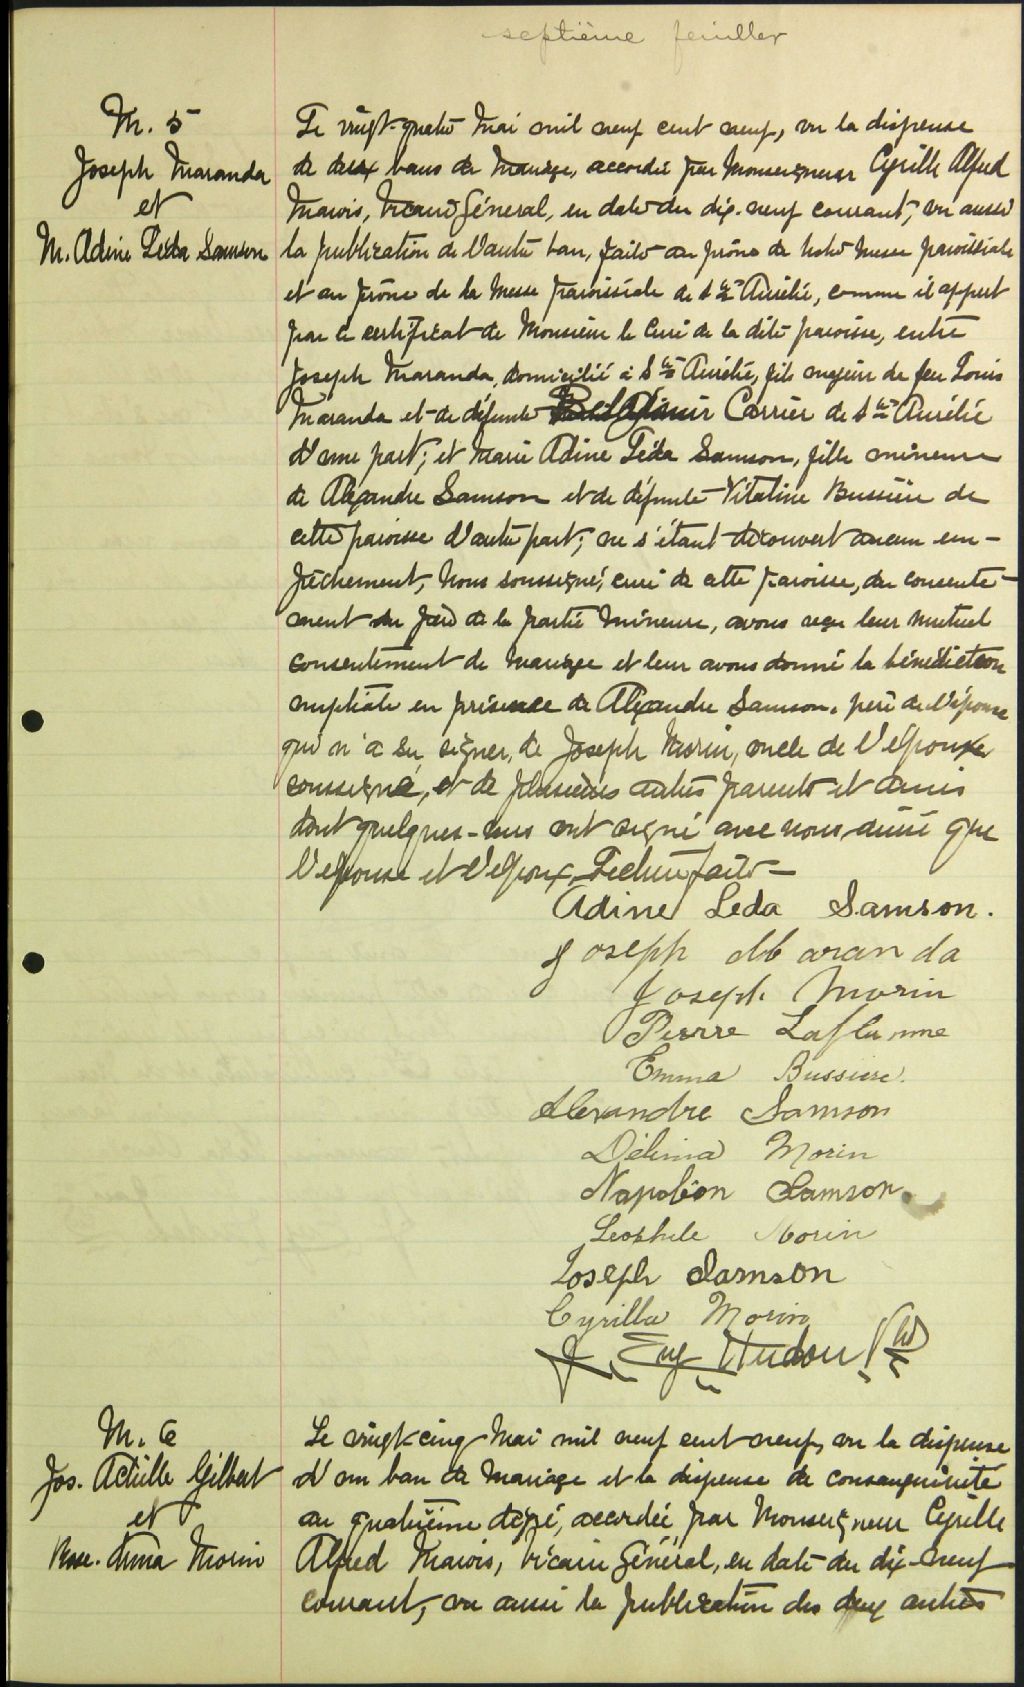 septième feuillet
M. 5
Joseph Maranda
et
M. Adine Léda Samson
Le vingt-quatre Mai mil neuf cent neuf, vu la dispense
de deux bans de Mariage, accordée par Monseigneur Cyrille Alfred
Marois, Vicaire Général, en date du dix-neuf courant; vu aussi
la publication de l'autre ban, faite au prône de notre Messe paroissiale
et au prône de la Messe paroissiale de Ste Aurélie, comme il appert
par le certificat de Monsieur le Curé de la dite paroisse, entre
Joseph Maranda, domicilié à Ste Aurélie, fils majeur de feu Louis
Maranda et de défunte Carrier de Ste Aurélie
d'une part; et Marie Adine Léda Samson, fille mineure
de Alexandre Samson et de défunte Vitaline Bussière de
cette paroisse d'autre part; ne s'étant découvert aucun em-
pêchement, Nous soussigné, curé de cette paroisse, du consente-
ment du père de la partie mineure, avons reçu leur mutuel
consentement de mariage et leur avons donné la bénédiction
nuptiale en présence de Alexandre Samson, père de l'épouse
qui n'a su signer, de Joseph Morin, oncle de l'époux
soussigné, et de plusieurs autres parents et amis
dont quelques-uns ont signé avec nous ainsi que
l'épouse et l'époux. Lecture faite -
Adine Leda Samson.
Joseph Maranda
Joseph Morin
Pierre Laflamme
Emma Bussiere.
Alexandre Samson
Délima Morin
Napoléon Samson
Morin
Joseph Samson
Cyrilla Morin
J. Eug. Hudon Ptre
M. 6
Jos. Achille Gilbert
et
Rose-Anna Morin
Le vingt-cinq Mai mil neuf cent neuf, vu la dispense
d'un ban de Mariage et la dispense de consanguinité
au quatrième degré, accordée par Monseigneur Cyrille
Alfred Marois, Vicaire Général, en date du dix-neuf
courant, vu aussi la publication des deux autres